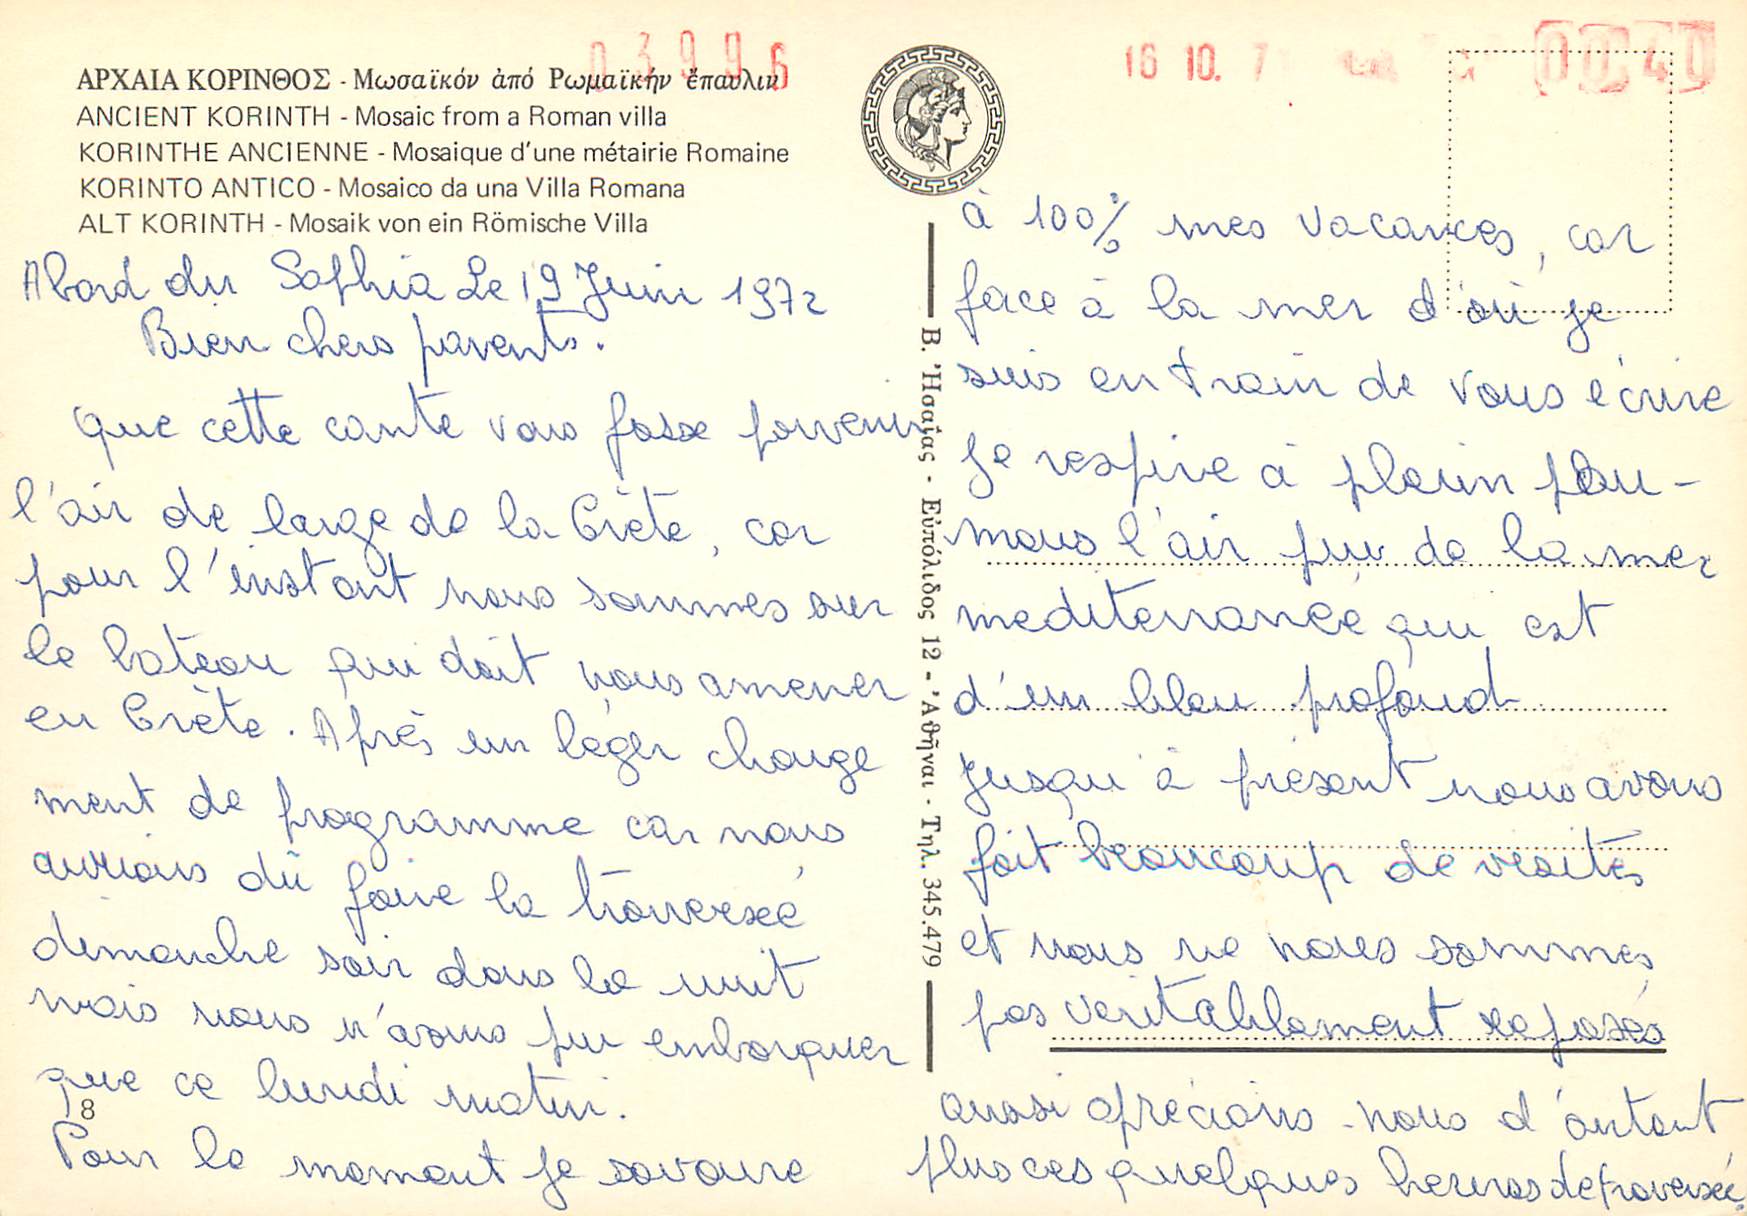 03996
16 10. 7
0040
ΑΡΧΑΙΑ ΚΟΡΙΝΘΟΣ - Μωσαϊκόν ἀπό Ρωμαϊκήν ἔπαυλιν
ANCIENT KORINTH - Mosaic from a Roman villa
KORINTHE ANCIENNE - Mosaique d'une métairie Romaine
KORINTO ANTICO - Mosaico da una Villa Romana
ALT KORINTH - Mosaik von ein Römische Villa
Abord du Saphia Le 19 Juin 1972
Bien chers parents.
que cette carte vous fasse parvenir
l'air de large de la Crète, car
pour l'instant nous sommes sur
le bateau qui doit nous amener
en Crète. Après un léger change
ment de programme car nous
aurions dû faire la traversée
dimanche soir dans la nuit
mais nous n'avons pu embarquer
que ce lundi matin.
8
Pour le moment je savoure
Β. Ἡσαΐας - Εὐπόλιδος 12 - Ἀθῆναι - Τηλ. 345.479
à 100% mes vacances, car
face à la mer d'où je
suis en train de vous écrire
Je respire à plein pou-
mons l'air pur de la mer
mediterranée qui est
d'un bleu profond
Jusqu'à présent nous avons
fait beaucoup de visites
et nous ne nous sommes
pas veritablement reposés
aussi aprécions-nous d'autant
plus ces quelques heures de traversée.